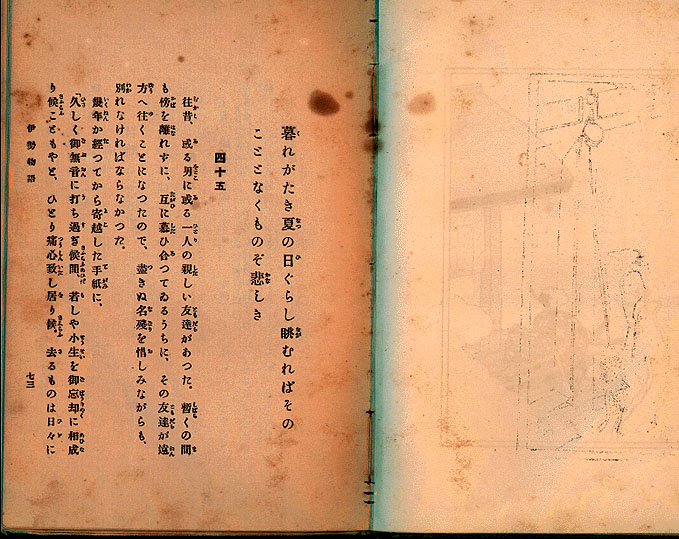 暮れがたき夏の日ぐらし眺むればその
こととなくものぞ悲しき
四十五
往昔、或る男に或る一人の親しい友達があつた。暫くの間
も傍を離れずに、互に慕ひ合つてゐるうちに、その友達が遠
方へ往くことになつたので、盡きぬ名殘を惜しみながらも、
別れなければならなかつた。
幾年か經つてから寄越した手紙に、
「久しく御無音に打ち過ぎ候間、若しや小生を御忘却に相成
り候こともやと、ひとり痛心致し居り候。去るものは日々に
伊勢物語
七三